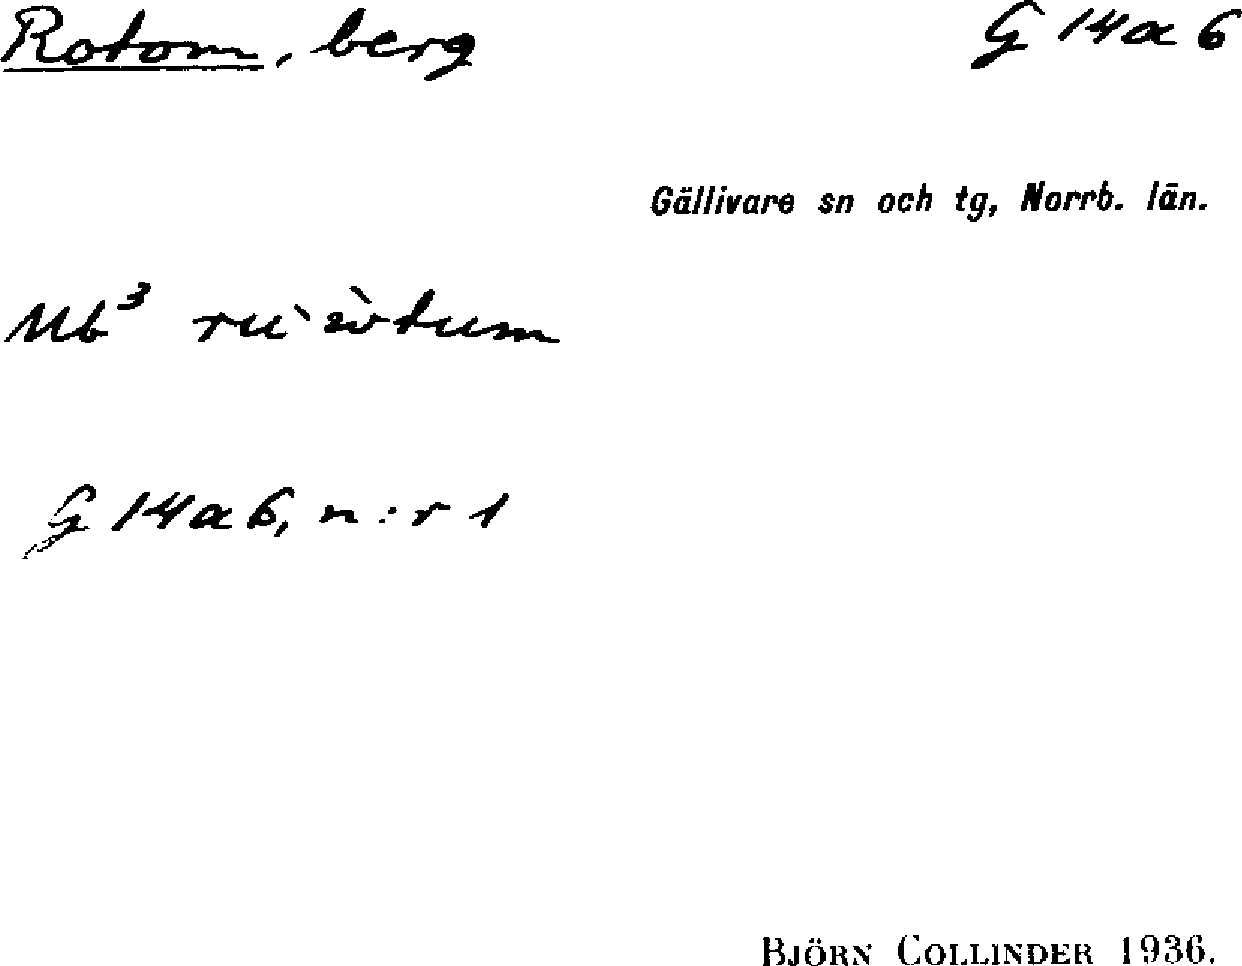 Rotom, berg G 14a6
Gällivare sn och tg, Norrb. län.
Ub³
G 14a6, n:r 1
BJÖRN COLLINDER 1936.